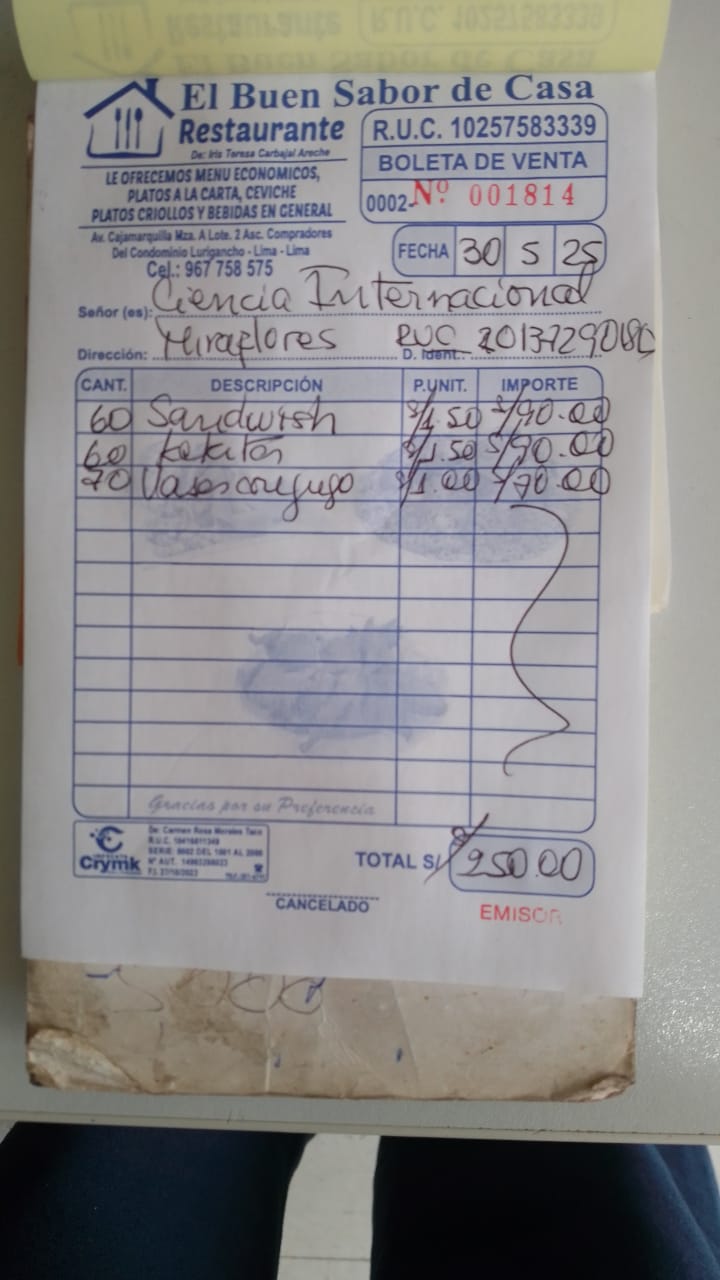 El Buen Sabor de Casa
Restaurante
De: Iris Teresa Carbajal Areche
LE OFRECEMOS MENU ECONOMICOS,
PLATOS A LA CARTA, CEVICHE
PLATOS CRIOLLOS Y BEBIDAS EN GENERAL
Av. Cajamarquilla Mza. A Lote. 2 Asc. Compradores
Del Condominio Lurigancho - Lima - Lima
Cel.: 967 758 575
R.U.C. 10257583339
BOLETA DE VENTA
0002- Nº 001814
FECHA 30 5 25
Señor (es): Ciencia Internacional
Dirección: Miraflores D. Ident. RUC
CANT. DESCRIPCIÓN P.UNIT. IMPORTE
60 Sandwish S/1.50 S/90.00
60 kekitos S/1.50 S/90.00
70 Vasos con jugo S/1.00 S/70.00
Gracias por su Preferencia
Crymk
De: Carmen Rosa Morales Taco
TOTAL S/ S/250.00
CANCELADO
EMISOR